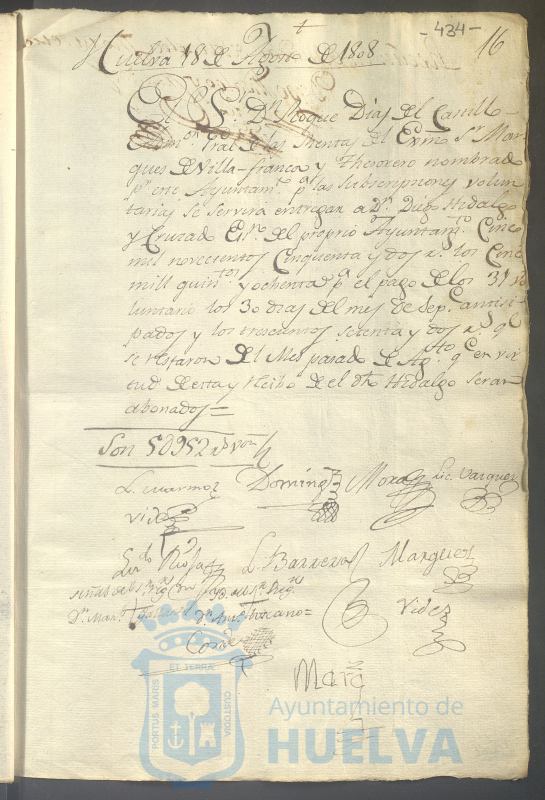 -434-
16
Huelva 18 de Agosto de 1808
El S.r D.n Roque Dias del Castillo
Adm.or Gral de las Rentas del Exmo S.r Mar
ques de Villa-franca y Thesorero nombrado
p.r este Ayuntam.to p.a las subscripciones volun
tarias se servirá entregar a D.n Diego Hidalgo
y Cruzado Es.no del proprio Ayuntam.to Cinco
mil novecientos Cinquenta y dos r.s los Cinc
mill quin.tos y ochenta p.a el pago de los 31 vo
luntario los 30 dias del mes de Sep.e antici
pados y los trescientos setenta y dos r.s q.e
se restaron del Mes pasado de Ag.to q.e en vir
tud de esta y Recibo de el dho Hidalgo seran
abonados=
Son 50952 r.s von
L. marmol
Domingz
Mora
Lic. Vazquez
Videz
L. Barrera
Marquez
Videz
Conde
Marq
PORTUS MARIS
ET TERRAE
CUSTODIA
Ayuntamiento de
HUELVA